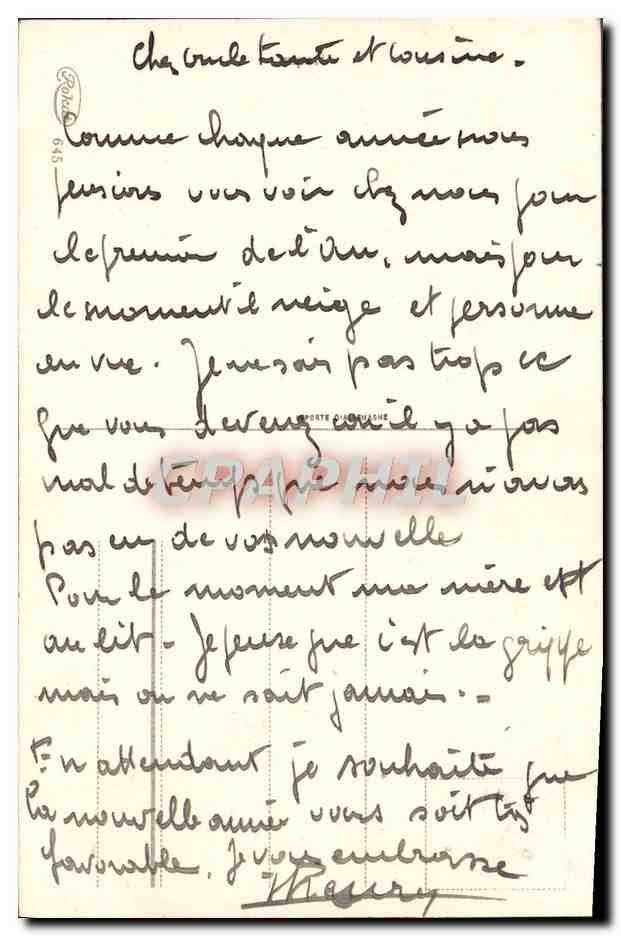 Cher oncle tante et cousine.
Comme chaque année nous
pensions vous voir chez nous pour
le premier de l'An, mais pour
le moment il neige et personne
en vue. Je ne sais pas trop ce
IMPORTE D'ALLEMAGNE
que vous devenez car il y a pas
mal de temps que nous n'avons
CPAPHIL
pas eu de vos nouvelle
Pour le moment ma mère est
au lit - Je pense que c'est la grippe
mais on ne sait jamais. =
En attendant je souhaite que
la nouvelle année vous soit très
favorable. Je vous embrasse
645